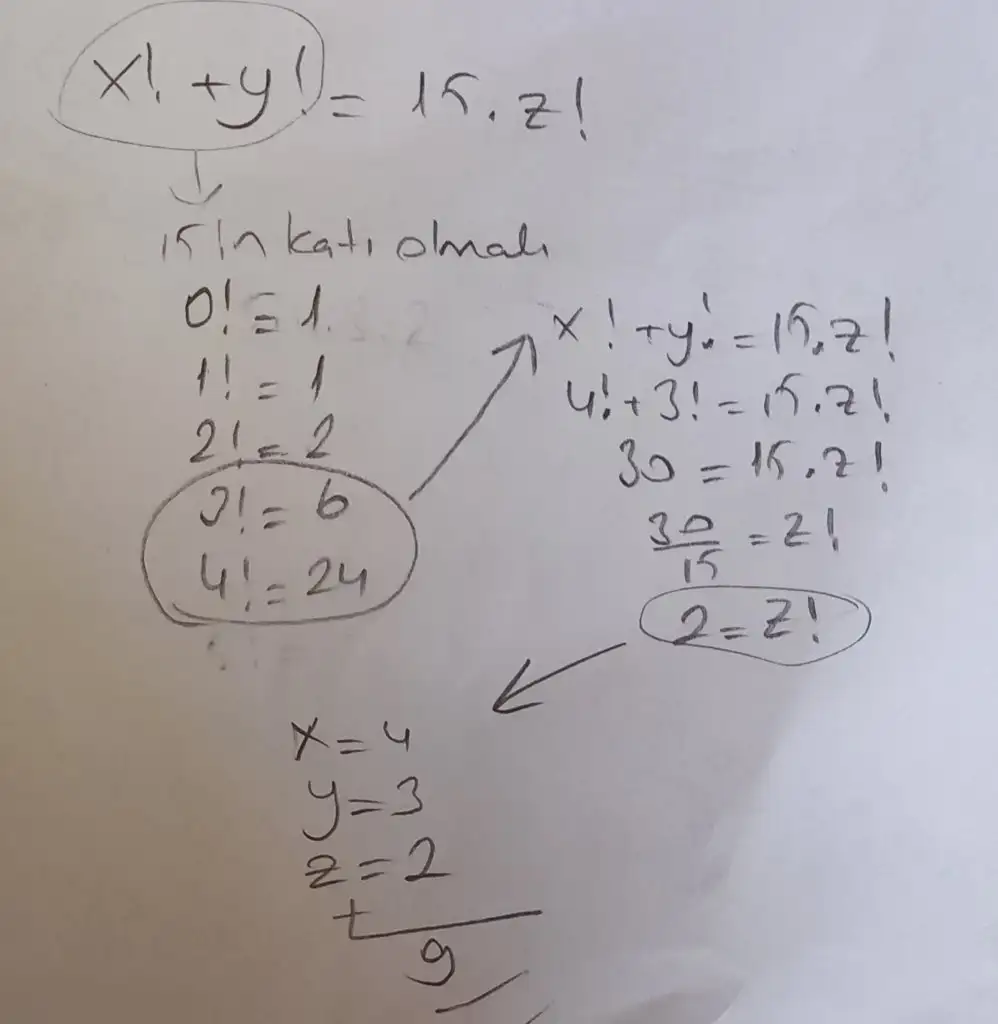 x! + y! = 15. z!
15'in katı olmalı
0! = 1
1! = 1
2! = 2
3! = 6
4! = 24
x! + y! = 15. z!
4! + 3! = 15. z!
30 = 15. z!
30/15 = z!
2 = z!
x = 4
y = 3
z = 2
+
9